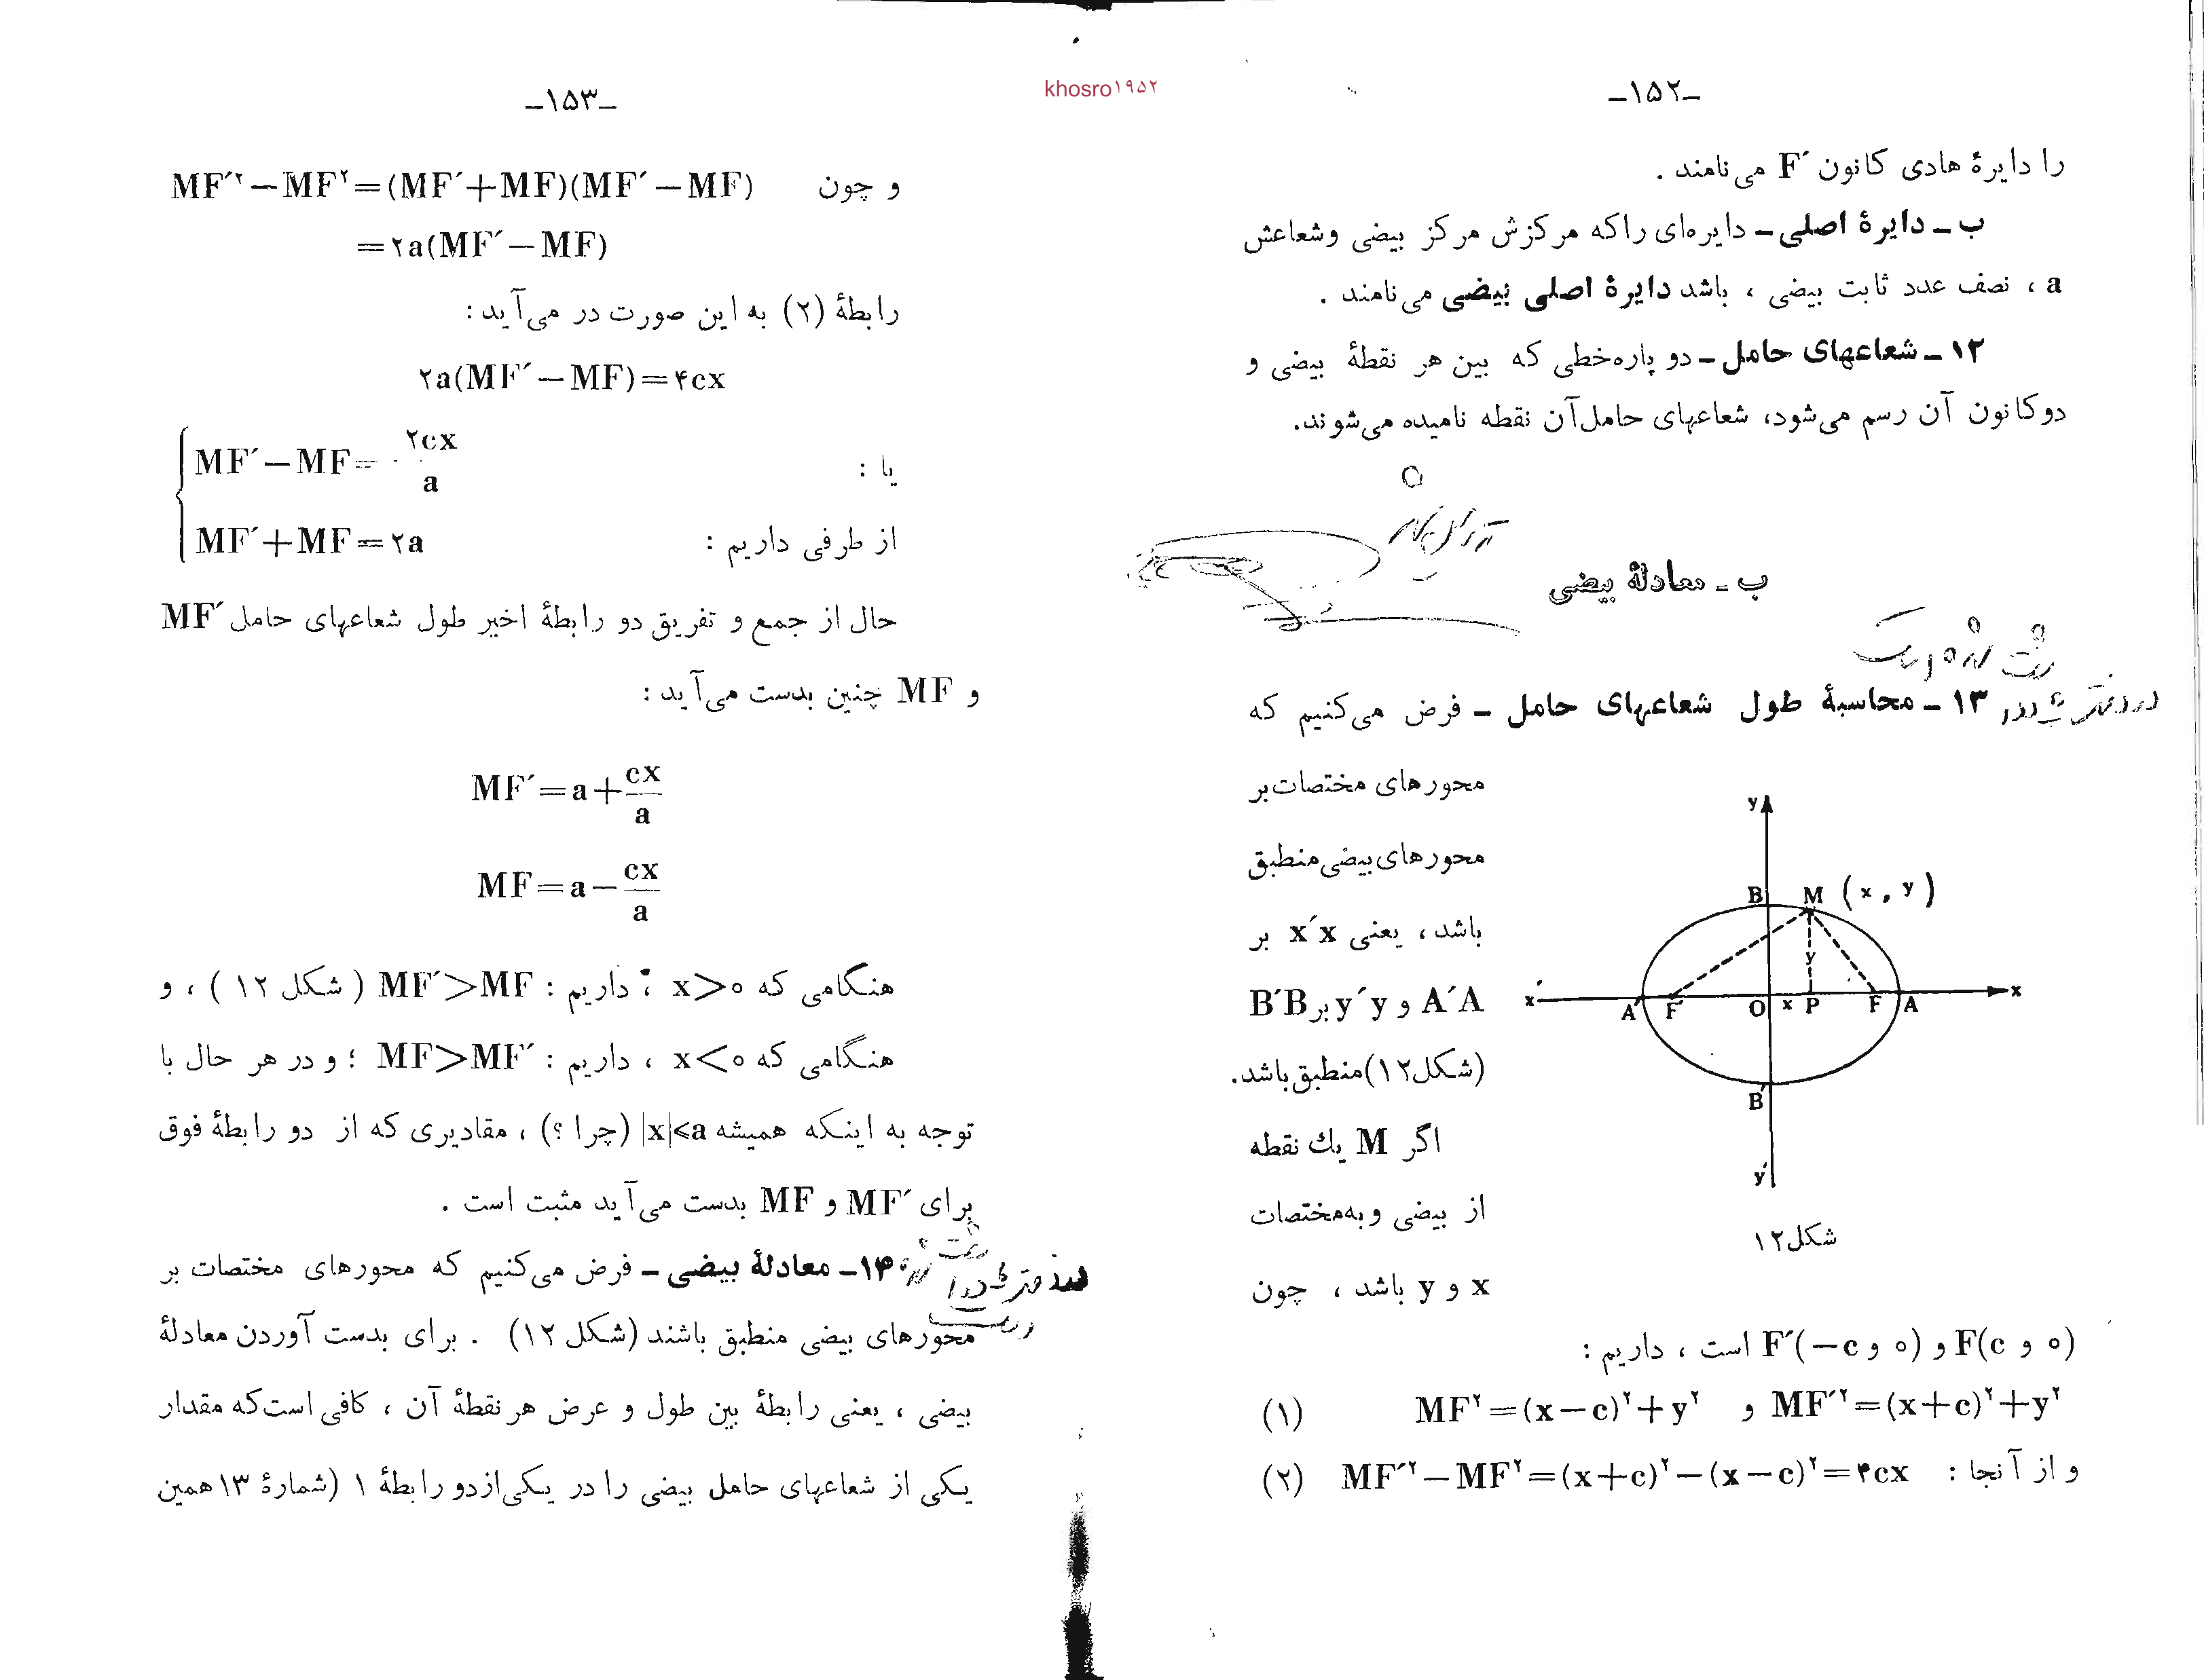 khosro۱۹۵۲
–۱۵۲–
را دایرهٔ هادی کانون F′ می‌نامند .
ب – دایرهٔ اصلی – دایره‌ای را که مرکزش مرکز بیضی وشعاعش
a ، نصف عدد ثابت بیضی ، باشد دایرهٔ اصلی بیضی می‌نامند .
۱۲ – شعاعهای حامل – دو پاره‌خطی که بین هر نقطهٔ بیضی و
دو کانون آن رسم می‌شود، شعاعهای حامل آن نقطه نامیده می‌شوند.
ب – معادلهٔ بیضی
۱۳ – محاسبهٔ طول شعاعهای حامل – فرض می‌کنیم که
محورهای مختصات بر
محورهای بیضی منطبق
باشد ، یعنی x′x بر
A′A و y′y بر B′B
(شکل۱۲) منطبق باشد.
اگر M یك نقطه
از بیضی و به‌مختصات
x و y باشد ، چون
y
B M (x , y)
y
x′ A′ F′ O x P F A x
B′
y′
شکل۱۲
F(c و ۰) و F′(−c و ۰) است ، داریم :
MF′۲=(x+c)۲+y۲ و MF۲=(x−c)۲+y۲ (۱)
و از آنجا : MF′۲−MF۲=(x+c)۲−(x−c)۲=۴cx (۲)
–۱۵۳–
و چون MF′۲−MF۲=(MF′+MF)(MF′−MF)
=۲a(MF′−MF)
رابطهٔ (۲) به این صورت در می‌آید :
۲a(MF′−MF)=۴cx
یا : MF′−MF=۲cx/a
از طرفی داریم : MF′+MF=۲a
حال از جمع و تفریق دو رابطهٔ اخیر طول شعاعهای حامل MF′
و MF چنین بدست می‌آید :
MF′=a+cx/a
MF=a−cx/a
هنگامی که x>۰ ، داریم : MF′>MF ( شکل ۱۲ ) ، و
هنگامی که x<۰ ، داریم : MF>MF′ ؛ و در هر حال با
توجه به اینکه همیشه |x|⩽a (چرا ؟) ، مقادیری که از دو رابطهٔ فوق
برای MF′ و MF بدست می‌آید مثبت است .
۱۴– معادلهٔ بیضی – فرض می‌کنیم که محورهای مختصات بر
محورهای بیضی منطبق باشند (شکل ۱۲) . برای بدست آوردن معادلهٔ
بیضی ، یعنی رابطهٔ بین طول و عرض هر نقطهٔ آن ، کافی است که مقدار
یکی از شعاعهای حامل بیضی را در یکی از دو رابطهٔ ۱ (شمارهٔ ۱۳ همین